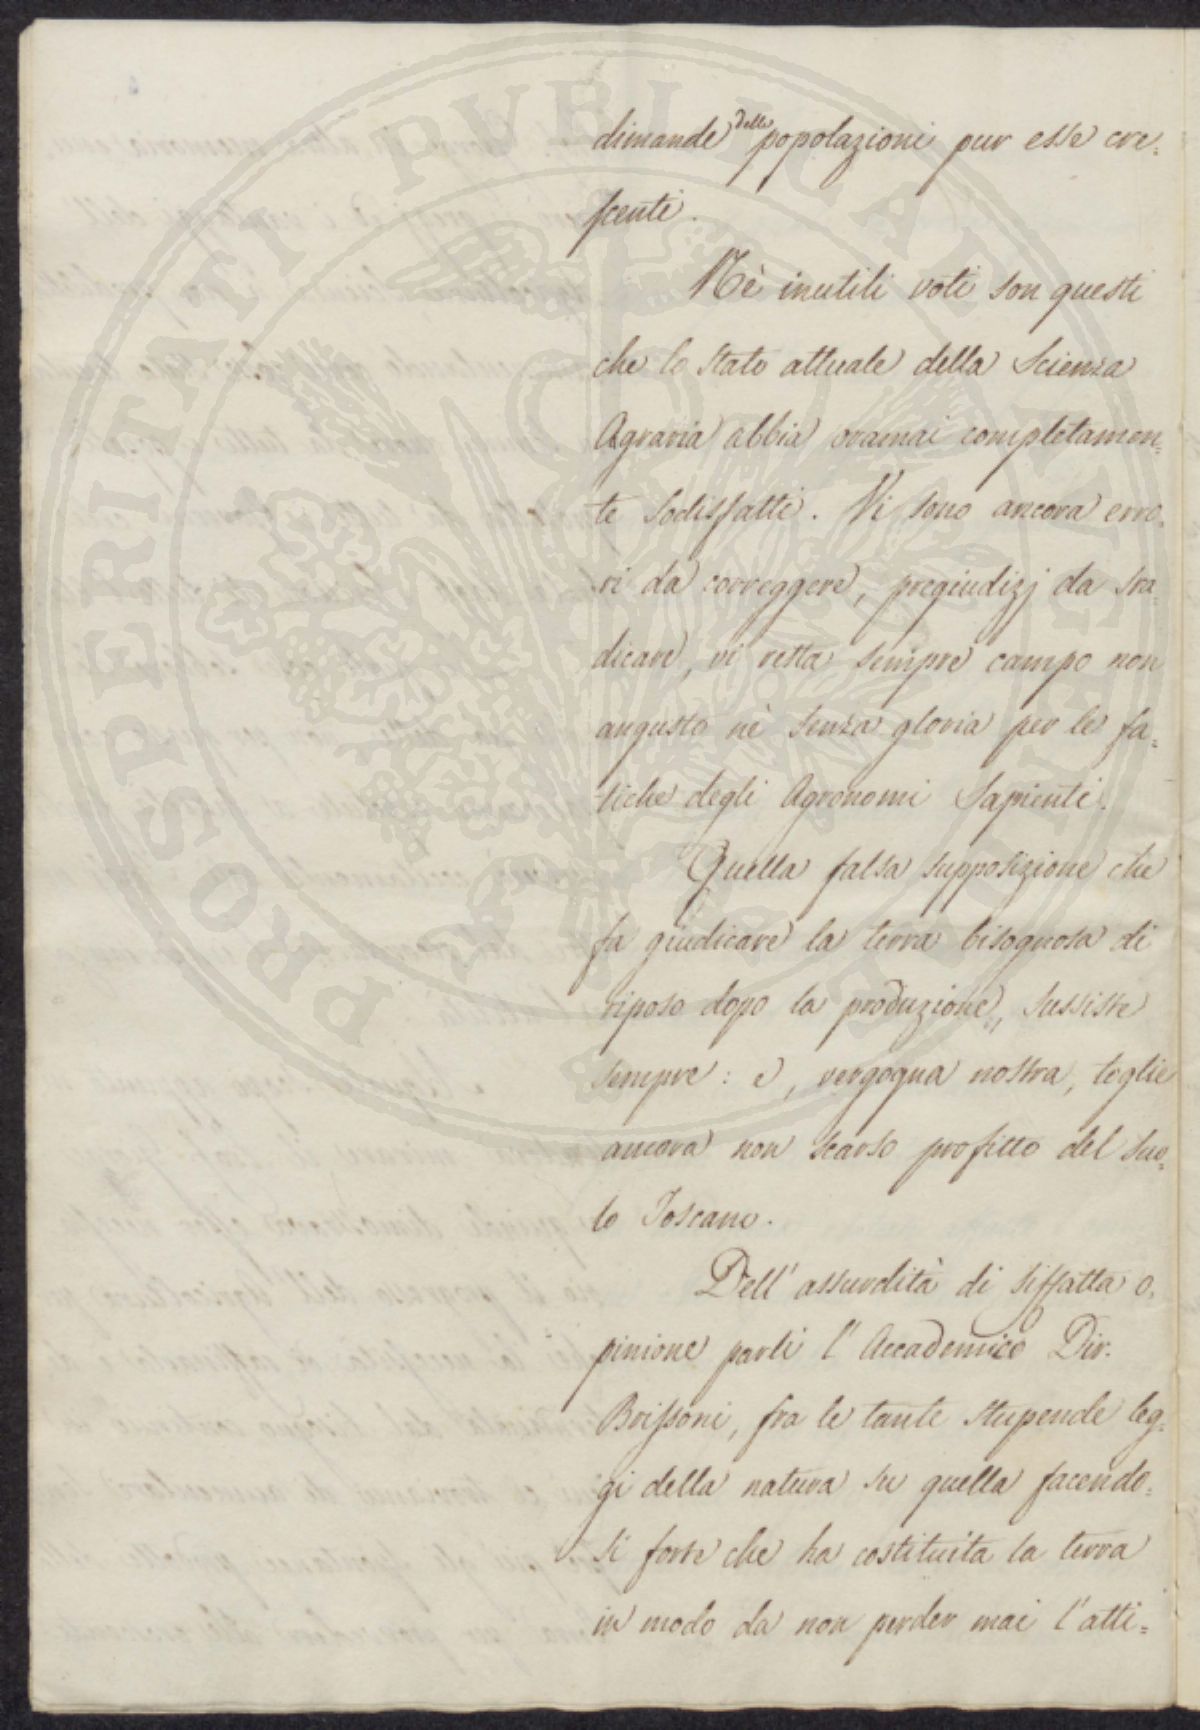 dimande delle popolazioni pur esse cre=
scenti.
Nè inutili voti son questi
che lo stato attuale della Scienza
Agraria abbia oramai completamen=
te sodisfatti. Vi sono ancora erro=
ri da correggere, pregiudizj da sra=
dicare, vi resta sempre campo non
angusto nè senza gloria per le fa=
tiche degli Agronomi Sapienti.
Quella falsa supposizione che
fa giudicare la terra bisognosa di
riposo dopo la produzione, sussiste
sempre: e, vergogna nostra, toglie
ancora non scarso profitto del suo=
lo Toscano.
Dell'assurdità di siffatta o=
pinione parli l'Accademico Dir.
Brissoni, fra le tante stupende leg=
gi della natura su quella facendo=
si forte che ha costituita la terra
in modo da non perder mai l'atti=
PROSPERITATI PUBLICAE AUGENDAE